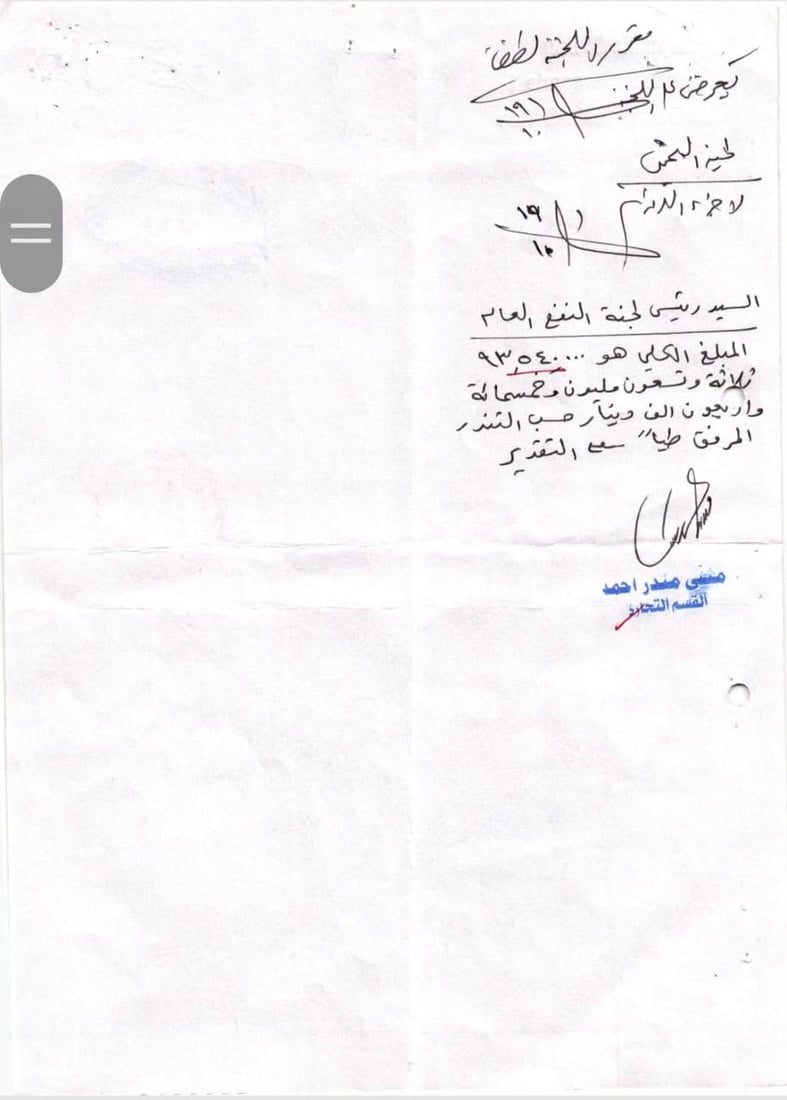 مقرر اللجنة لطفاً
ليعرض على اللجنة
١٩/١٠
لجنة
لاجراء اللازم
١٩/١٠
السيد رئيس لجنة النفع العام
المبلغ الكلي هو ٩٣,٥٤٠...
ثلاثة وتسعون مليون وخمسمائة
واربعون الف دينار حسب التندر
المرفق طياً مع التقدير
منى منذر احمد
القسم التجاري